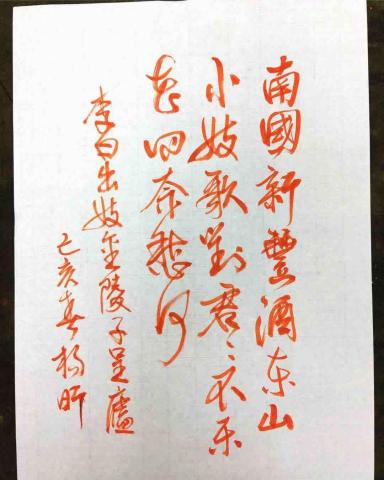 南國新豐酒东山
小妓歌對君〻不乐
花月奈愁何
李白出妓金陵子呈廬
己亥春楊昕